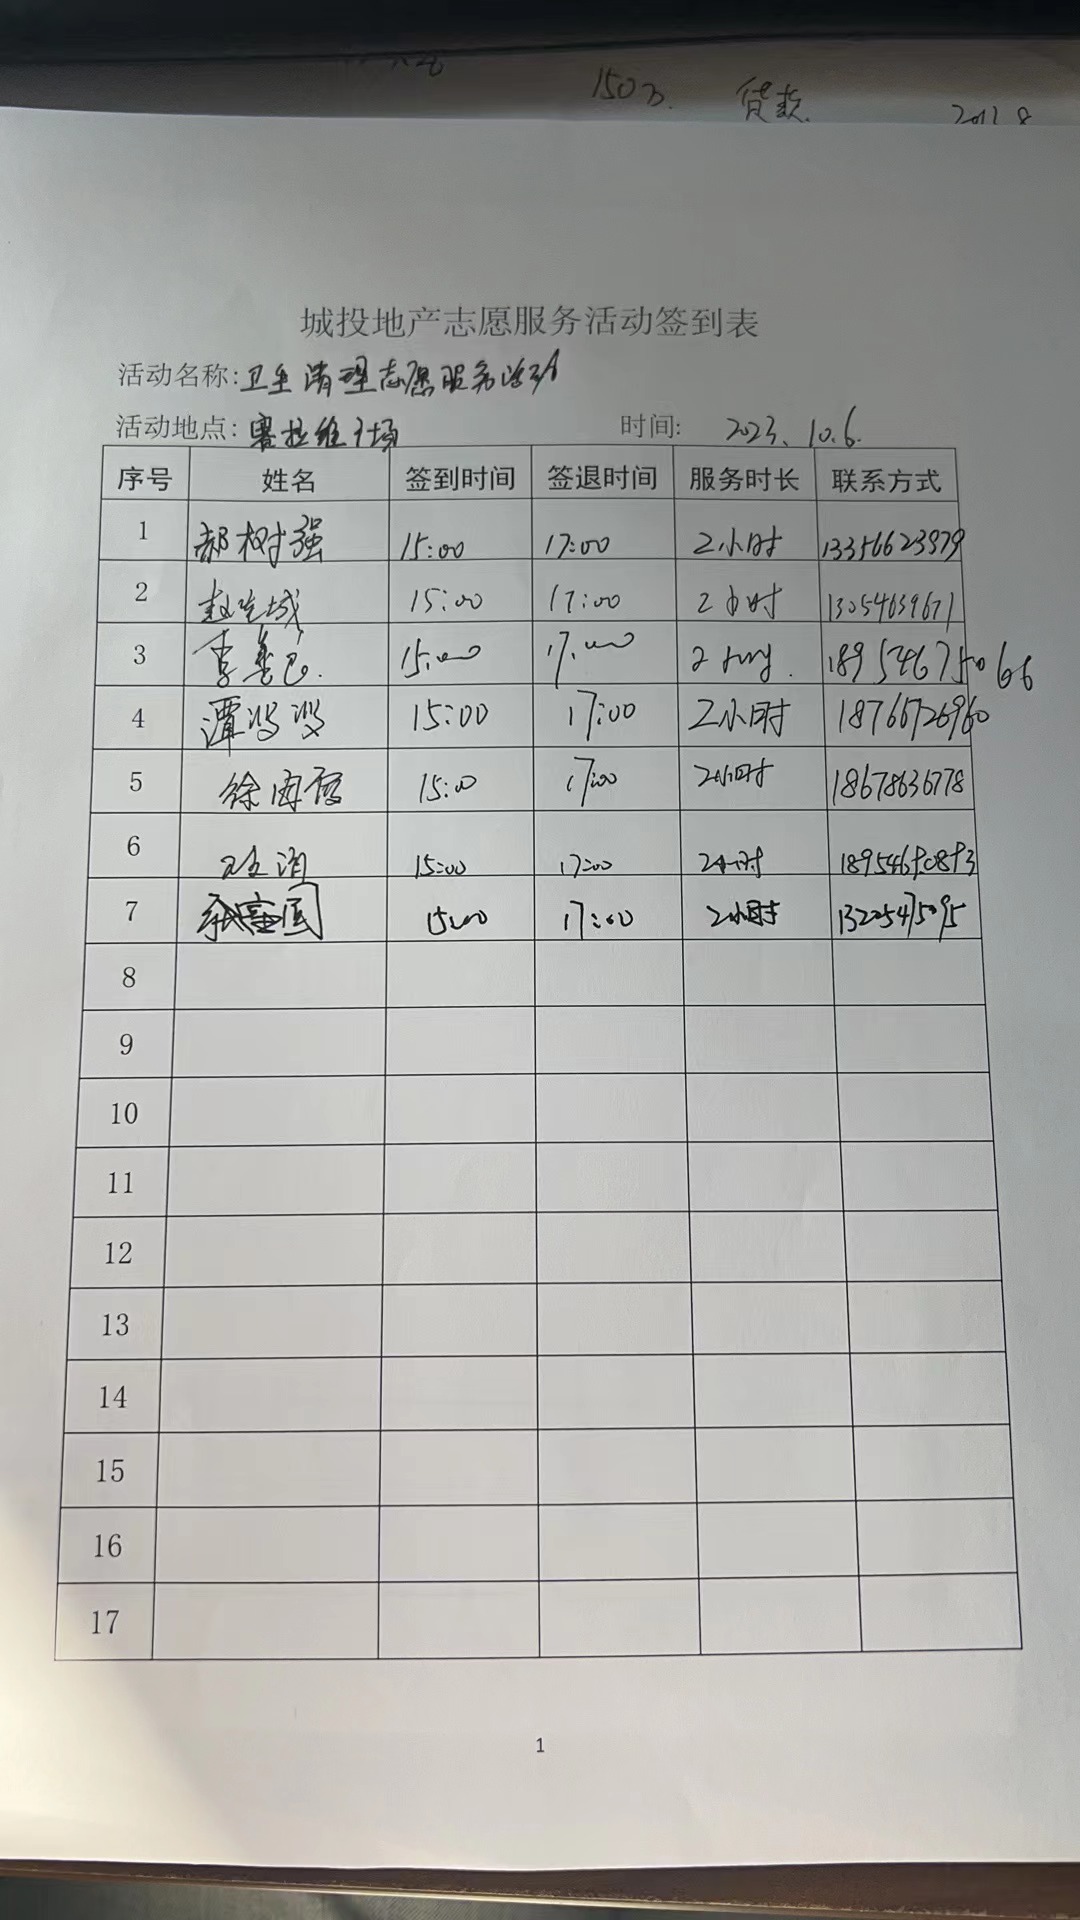 150万. 贷款.
城投地产志愿服务活动签到表
活动名称:卫生清理志愿服务活动
活动地点:塞拉维广场 时间: 2023.10.6.
序号 姓名 签到时间 签退时间 服务时长 联系方式
1 郝树强 15:00 17:00 2小时 13356623979
2 15:00 17:00 2小时 13054639671
3 李 15:00 17:00 2小时. 18954675066
4 谭 15:00 17:00 2小时 18766726960
5 徐 15:00 17:00 2小时 18678636778
6 15:00 17:00 2小时
7 15:00 17:00 2小时 13205475095
8
9
10
11
12
13
14
15
16
17
1